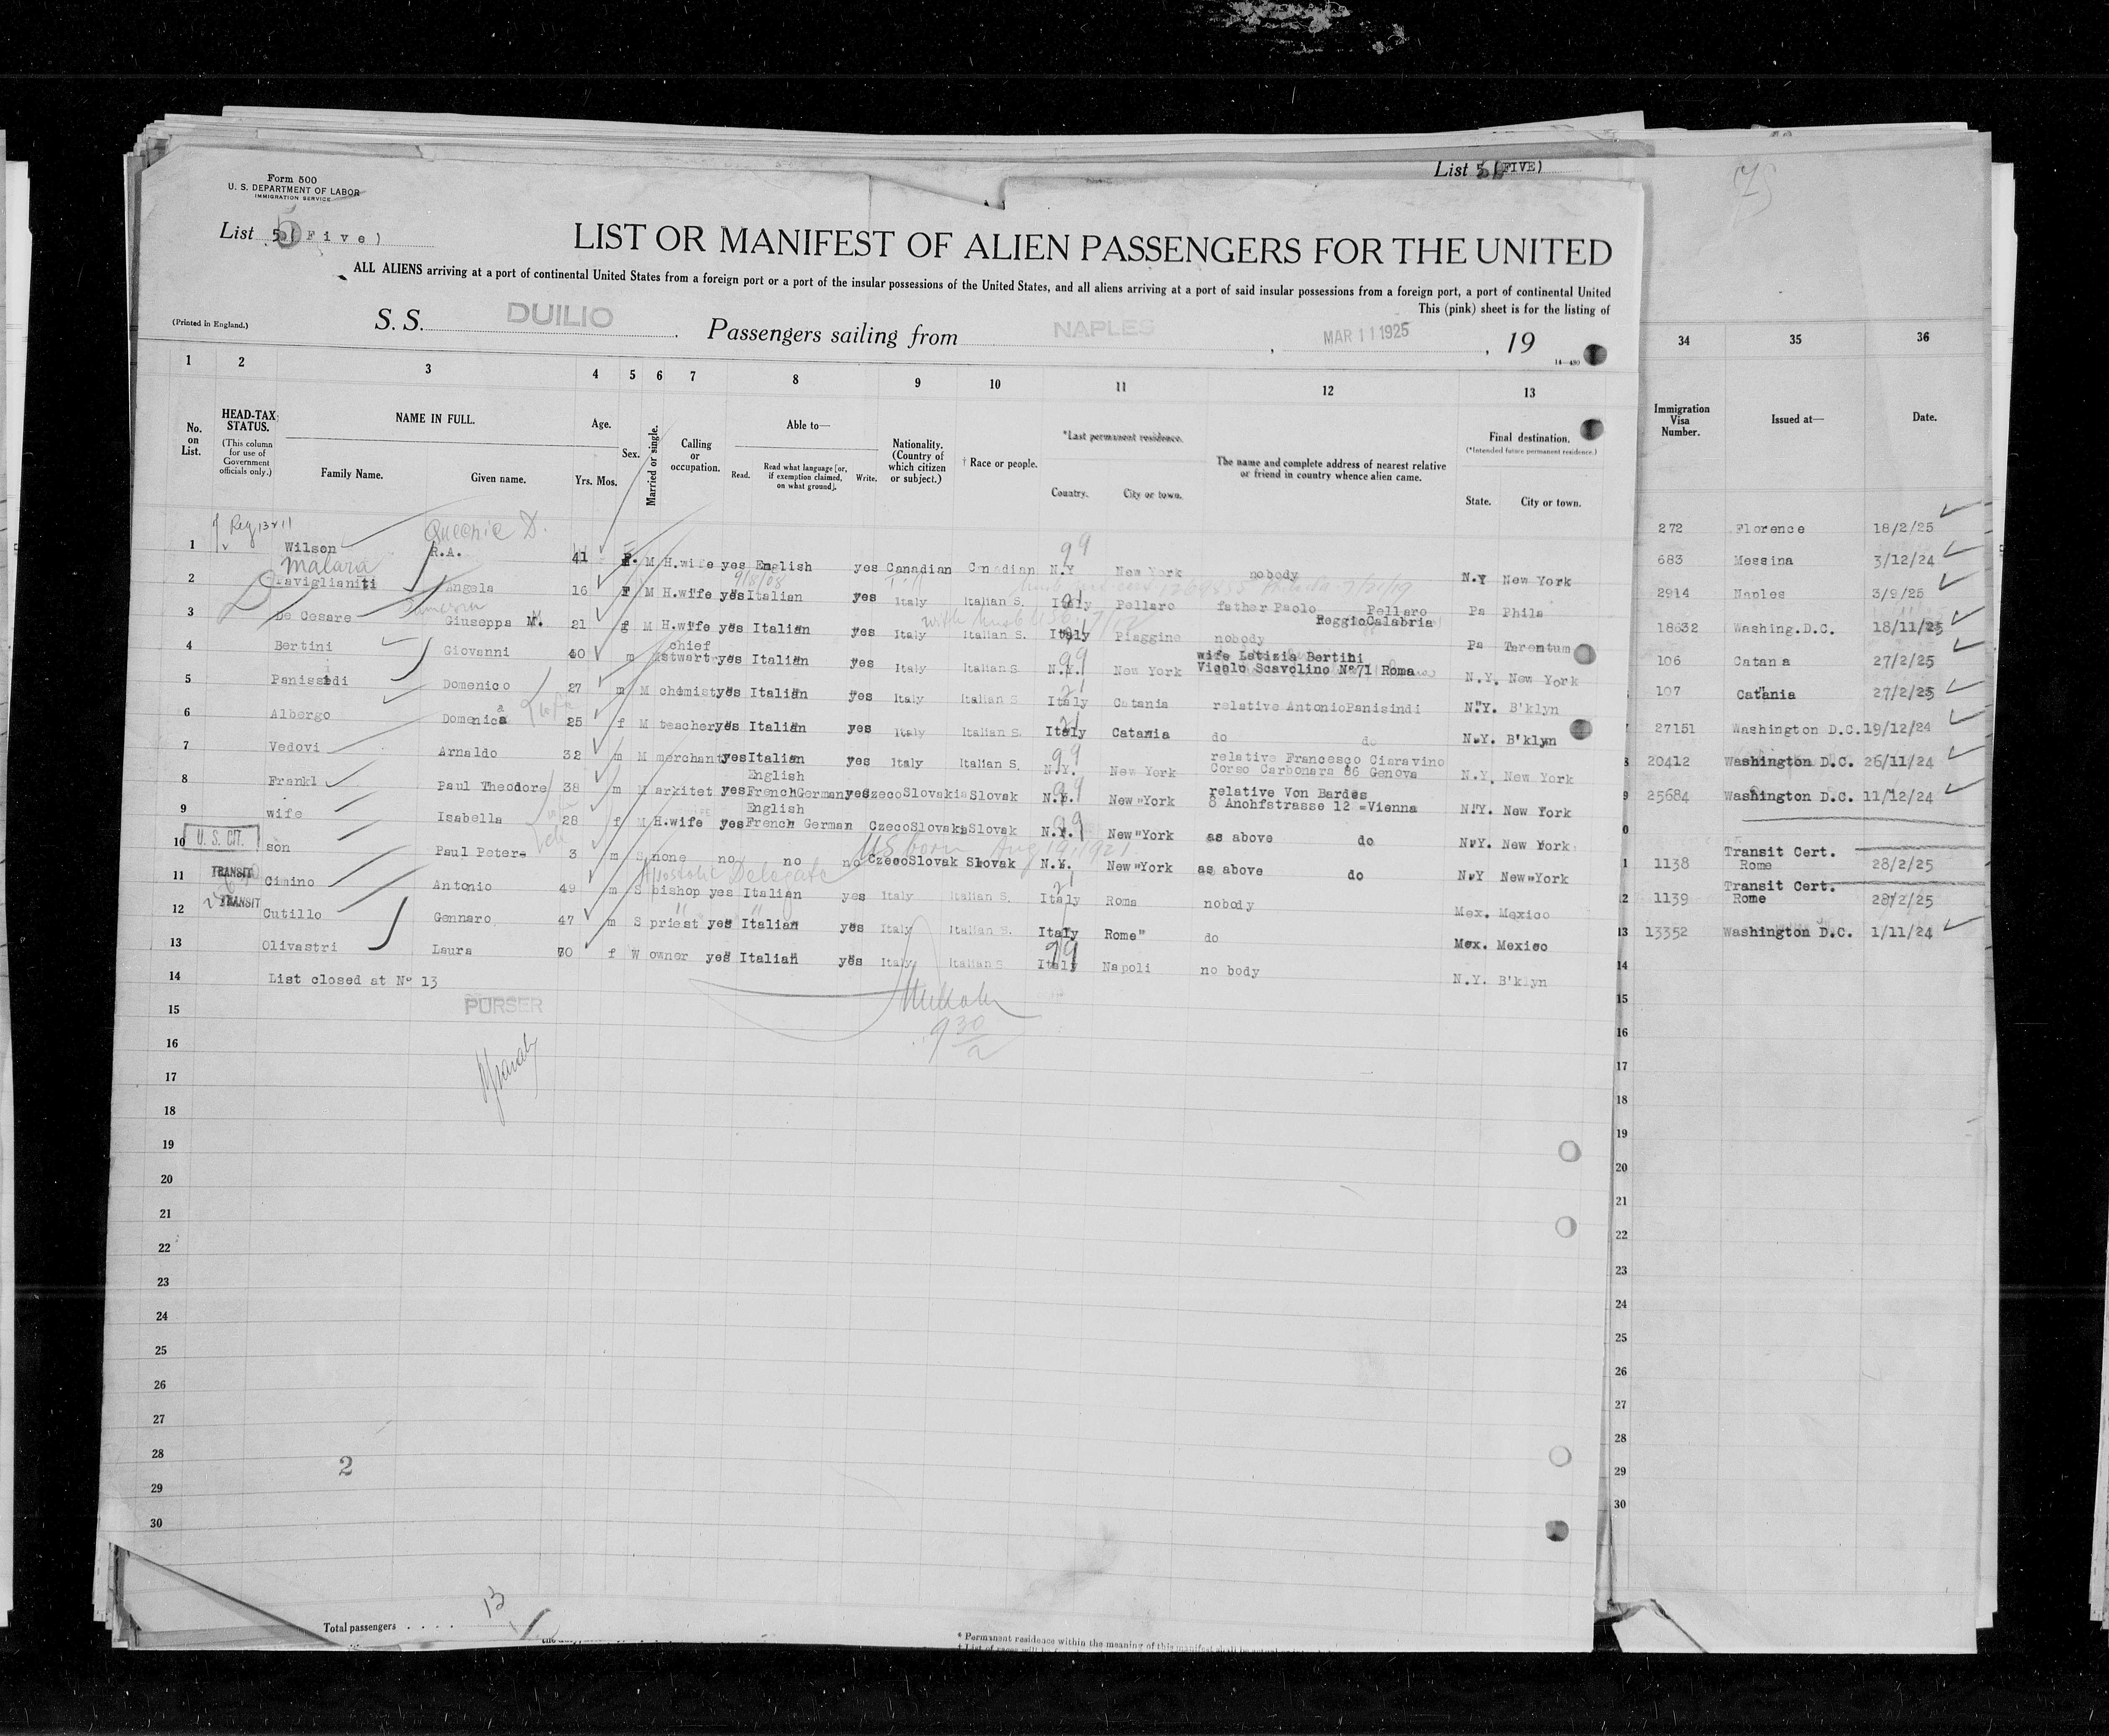 Form 500
U. S. DEPARTMENT OF LABOR
IMMIGRATION SERVICE
List 5 (FIVE)
List 5 (Five)
LIST OR MANIFEST OF ALIEN PASSENGERS FOR THE UNITED
ALL ALIENS arriving at a port of continental United States from a foreign port or a port of the insular possessions of the United States, and all aliens arriving at a port of said insular possessions from a foreign port, a port of continental United
This (pink) sheet is for the listing of
(Printed in England.)
S. S. DUILIO Passengers sailing from NAPLES, MAR 11 1925, 19
1 2 3 4 5 6 7 8 9 10 11 12 13 34 35 36
No. on List.
HEAD-TAX STATUS.
(This column for use of Government officials only.)
NAME IN FULL.
Family Name. Given name.
Age.
Yrs. Mos.
Sex.
Married or single.
Calling or occupation.
Able to—
Read. Read what language [or, if exemption claimed, on what ground]. Write.
Nationality. (Country of which citizen or subject.)
† Race or people.
*Last permanent residence.
Country. City or town.
The name and complete address of nearest relative or friend in country whence alien came.
Final destination.
(*Intended future permanent residence.)
State. City or town.
Immigration Visa Number.
Issued at—
Date.
Queenie D.
1 Wilson R.A. 41 F. M H.wife yes English yes Canadian Canadian N.Y New York nobody N.Y New York 272 Florence 18/2/25
Malara
2 Faviglianiti Angela 16 F M H.wife yes Italian yes Italy Italian S. Italy Pellaro father Paolo Pellaro Reggio Calabria Pa Phila 683 Messina 3/12/24
3 De Cesare Giuseppa M. 21 f M H.wife yes Italian yes Italy Italian S. Italy Piaggine nobody Pa Tarentum 2914 Naples 3/9/25
4 Bertini Giovanni 40 m M chief stwart yes Italian yes Italy Italian S. N.Y. New York wife Letizia Bertini Vicolo Scavolino No 71 Roma N.Y. New York 18632 Washing.D.C. 18/11/25
5 Panissidi Domenico 27 m M chemist yes Italian yes Italy Italian S Italy Catania relative Antonio Panisindi N.Y. B'klyn 106 Catana 27/2/25
6 Albergo Domenica 25 f M teacher yes Italian yes Italy Italian S. Italy Catania do do N.Y. B'klyn 107 Catania 27/2/25
7 Vedovi Arnaldo 32 m M merchant yes Italian yes Italy Italian S. N.Y. New York relative Francesco Ciaravino Corso Carbonara 86 Genova N.Y. New York 27151 Washington D.C. 19/12/24
8 Frankl Paul Theodore 38 m M arkitet yes English French German yes Czeco Slovakia Slovak N.Y. New York relative Von Bardes 8 Anohfstrasse 12 = Vienna N.Y. New York 20412 Washington D.C. 26/11/24
9 wife Isabella 28 f M H.wife yes English French German Czeco Slovakia Slovak N.Y. New York as above do N.Y. New York 25684 Washington D.C. 11/12/24
US born Aug 19, 1921
10 U. S. CIT. son Paul Peter- 3 m S none no no no Czeco Slovak Slovak N.Y. New York as above do N.Y New York
Apostolic Delegate
11 TRANSIT Cimino Antonio 49 m S bishop yes Italian yes Italy Italian S. Italy Roma nobody Mex. Mexico 1138 Transit Cert. Rome 28/2/25
12 TRANSIT Cutillo Gennaro 47 m S priest yes Italian yes Italy Italian S. Italy Rome do Mex. Mexico 1139 Transit Cert. Rome 28/2/25
13 Olivastri Laura 70 f W owner yes Italian yes Italy Italian S Italy Napoli no body N.Y. B'klyn 13352 Washington D.C. 1/11/24
14 List closed at No 13
15 PURSER
16
17
18
19
20
21
22
23
24
25
26
27
28
2
29
30
Total passengers . . . . 13
* Permanent residence within the meaning of this manifest shall be